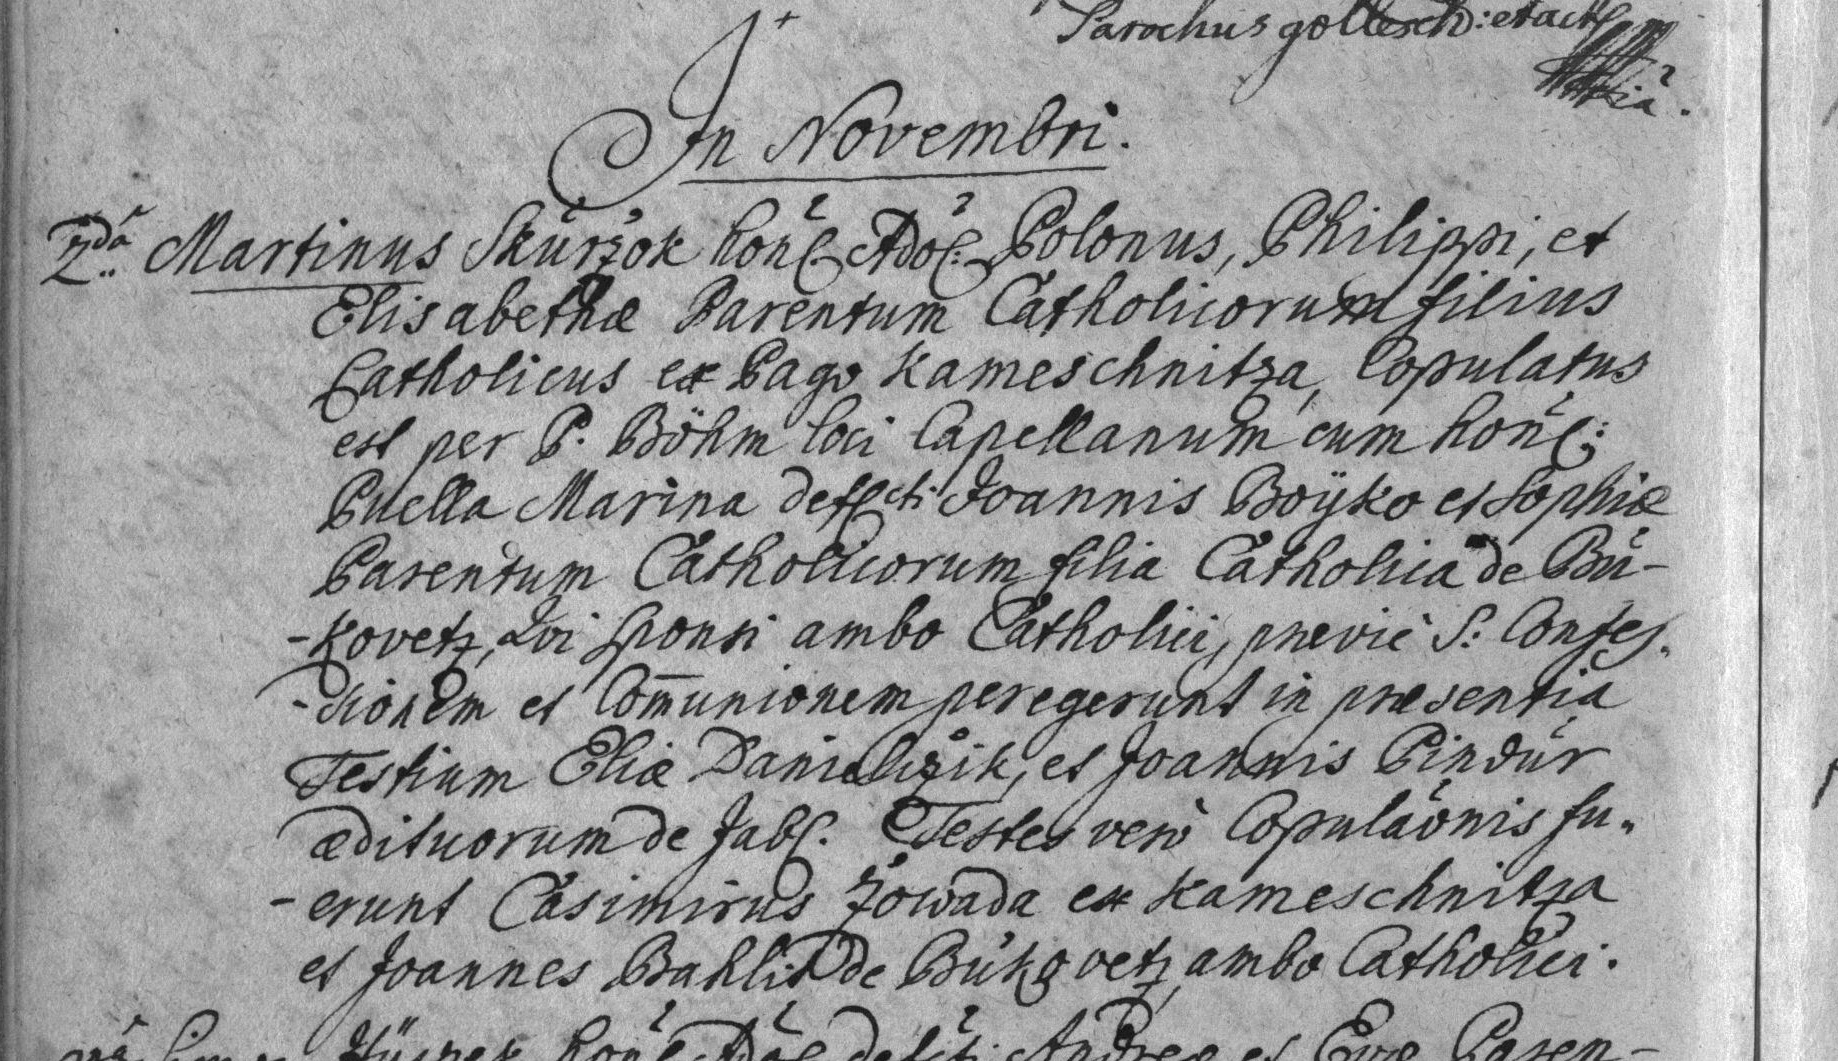 Parochus gollesch: et act
In Novembri.
2da Martinus Skurżok hon: Adol: Polonus, Philippi, et
Elisabethæ Parentum Catholicorum filius
Catholicus ex Pago Kameschnitza, Copulatus
est per P. Böhm loci Capellanum cum hon:
Puella Marina defcti Joannis Boÿko et Sophiæ
Parentum Catholicorum filia Catholica de Bu-
-kovetz, Qvi Sponsi ambo Catholici, prævie S. Confes-
-sionem et Com̄unionem peregerunt in præsentia
Testium Eliæ Danielczik, et Joannis Pindur
ædituorum de Jabl. Testes verò Copulaonis fu-
-erunt Casimirus Żowada ex Kameschnitza
et Joannes Bahlid de Bukovetz, ambo Catholici.
hon: Adol: defcti Andreæ et Evæ Paren-